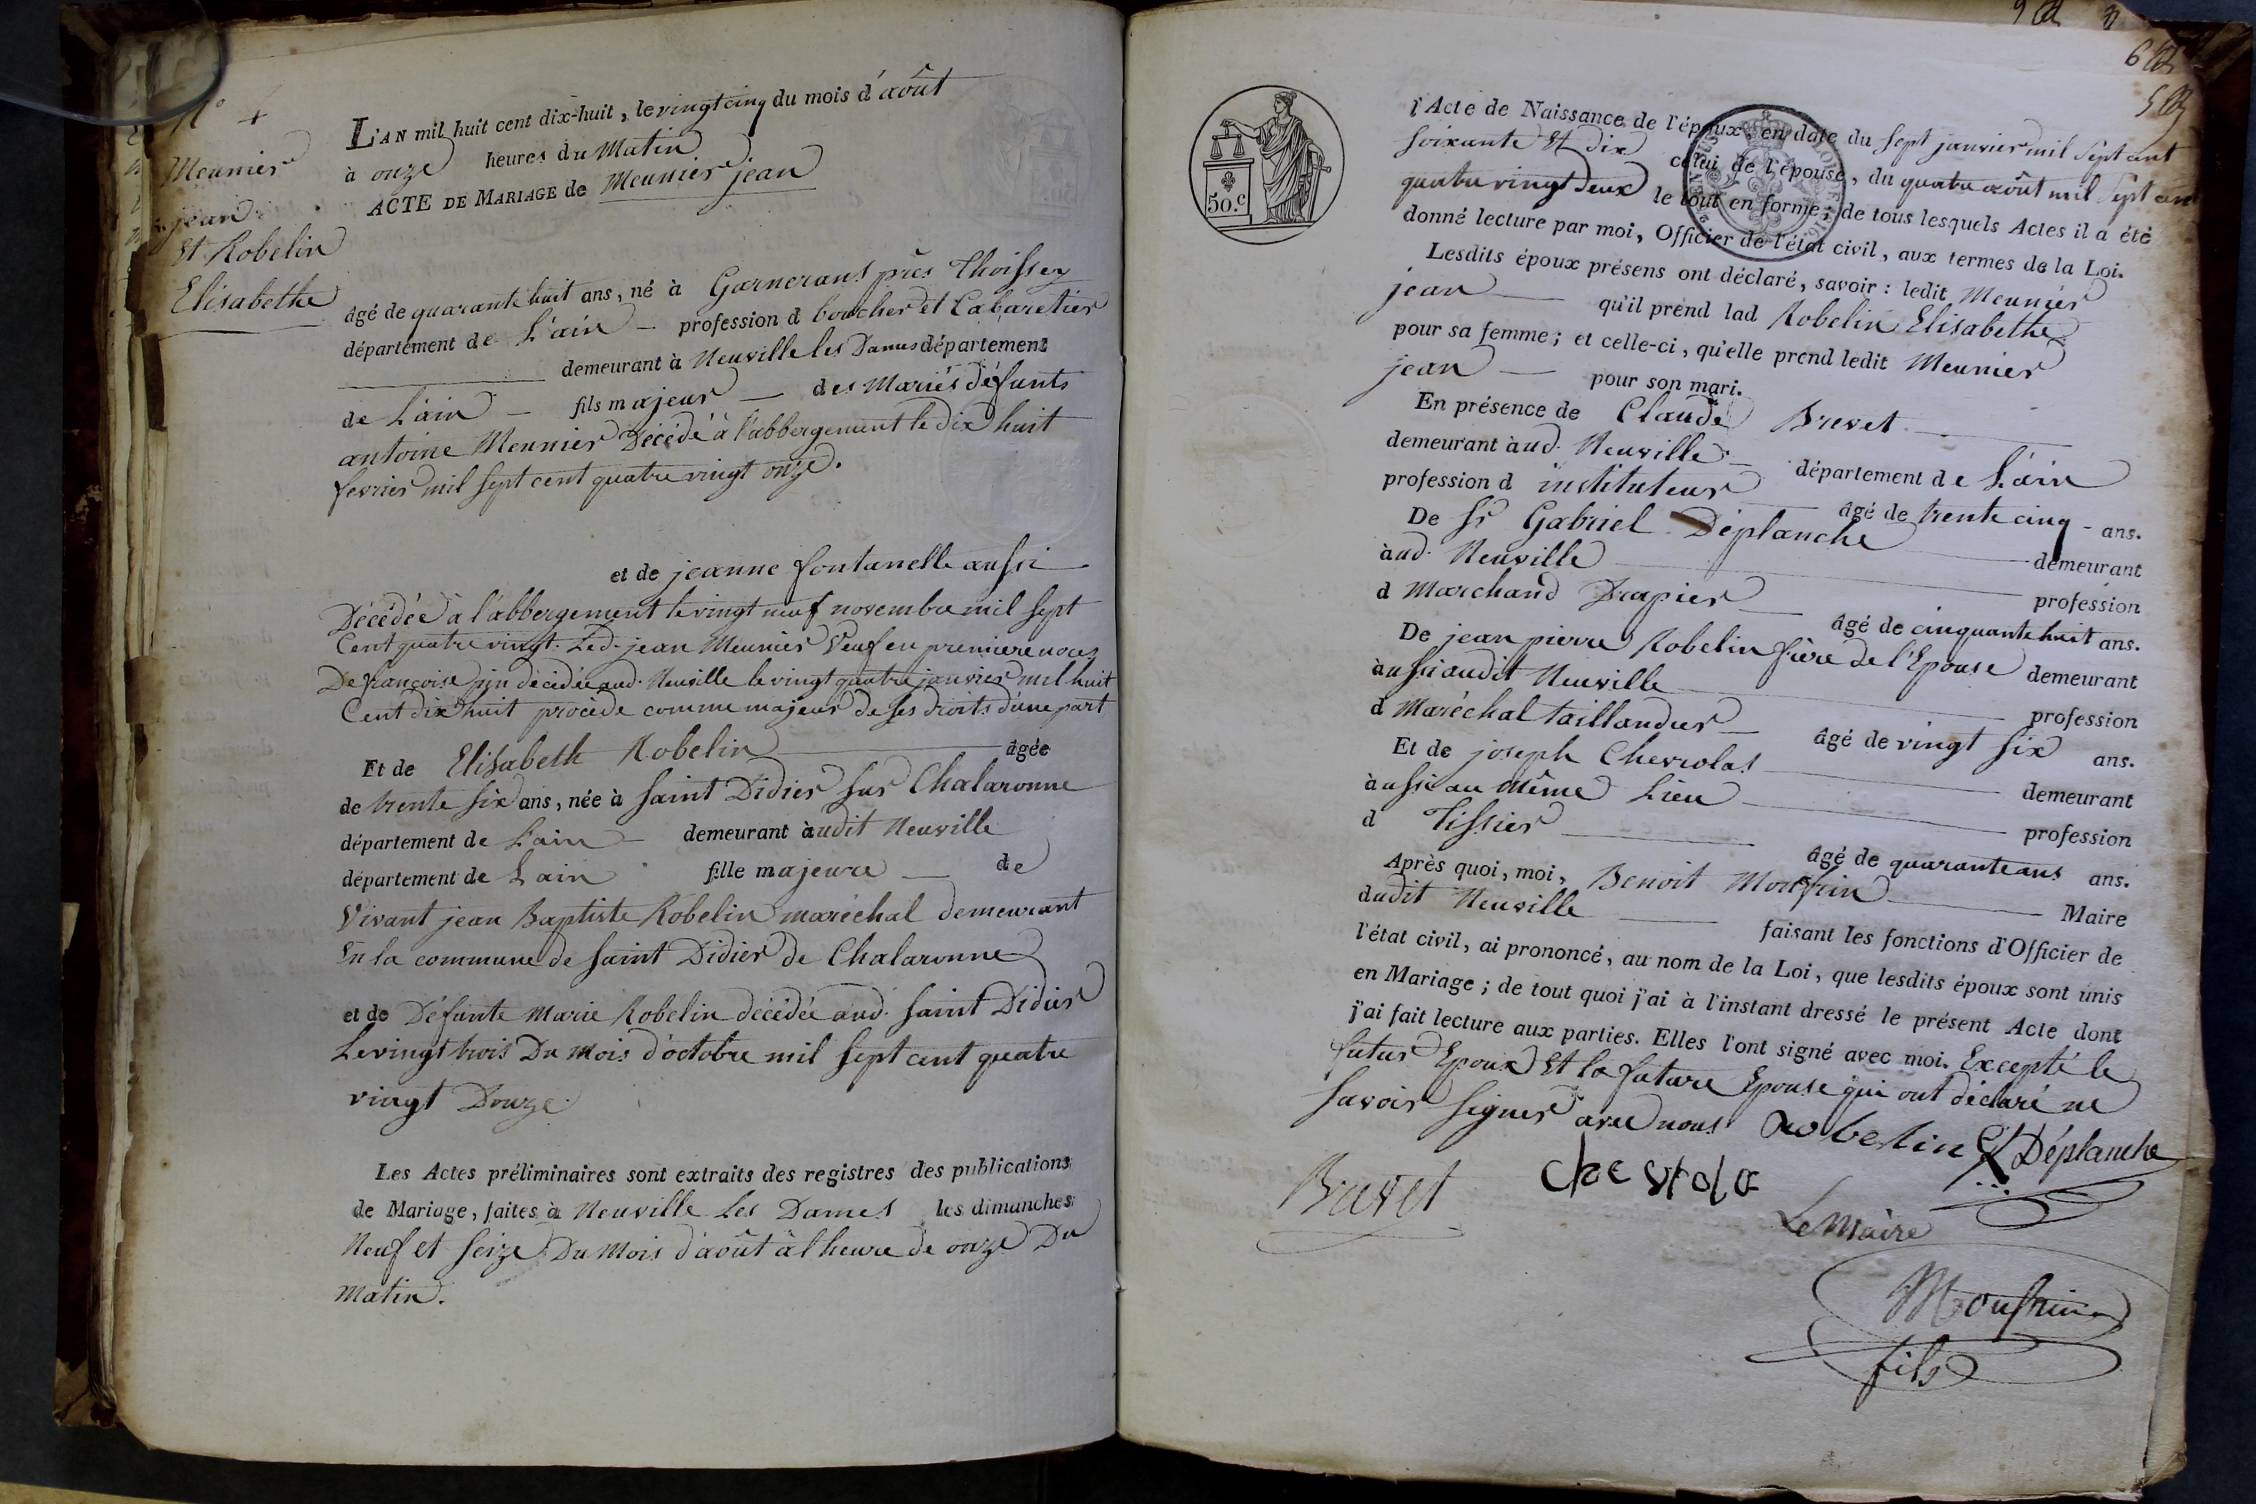 N° 4
Meunier
jean
et Robelin
Elisabethe
L'AN mil huit cent dix-huit, le vingt cinq du mois d'août
à onze heures du Matin
ACTE DE MARIAGE de Meunier jean
âgé de quarante huit ans, né à Garnerans près Thoissey
département de L'ain — profession d boucher et Cabaretier
demeurant à Neuville les Dames département
de L'ain — fils majeur — des Mariés défunts
antoine Meunier Décédé à l'abbergement le dix huit
fevrier mil sept cent quatre vingt onze.
et de jeanne fontanelle aussi
Décédée à l'abbergement le vingt neuf novembre mil sept
Cent quatre vingt. Led. jean Meunier Veuf en premiere noces
De françoise décédée aud. Neuville le vingt quatre janvier mil huit
Cent dix huit procède comme majeur de ses droits d'une part
Et de Elisabeth Robelin âgée
de trente six ans, née à Saint Didier sur Chalaronne
département de L'ain demeurant audit Neuville
département de L'ain fille majeure — de
Vivant jean Baptiste Robelin maréchal demeurant
En la commune de Saint Didier de Chalaronne
et de Défunte Marie Robelin décédée aud. Saint Didier
Le vingt trois Du Mois d'octobre mil sept cent quatre
vingt Douze.
Les Actes préliminaires sont extraits des registres des publications
de Mariage, faites à Neuville Les Dames les dimanches
Neuf et Seize Du Mois d'août à l'heure de onze Du
Matin.
50.c
l'Acte de Naissance de l'époux, en date du sept janvier mil sept cent
soixante et dix celui de l'épouse, du quatre août mil sept cent
quatre vingt deux le tout en forme; de tous lesquels Actes il a été
donné lecture par moi, Officier de l'état civil, aux termes de la Loi.
Lesdits époux présens ont déclaré, savoir : ledit Meunier
jean — qu'il prend lad Robelin Elisabethe
pour sa femme; et celle-ci, qu'elle prend ledit Meunier
jean — pour son mari.
En présence de Claude Brevet
demeurant àud. Neuville département de L'ain
profession d instituteur âgé de trente cinq - ans.
De Sr Gabriel Déplanche demeurant
àud. Neuville profession
d Marchand Drapier âgé de cinquante huit ans.
De jean pierre Robelin frère de l'Epouse demeurant
àussi audit Neuville profession
d Maréchal taillandier âgé de vingt six ans.
Et de joseph Chevrolas demeurant
àussi au Même Lieu profession
d Tissier âgé de quarante ans ans.
Après quoi, moi, Benoit Monfrin Maire
dudit Neuville faisant les fonctions d'Officier de
l'état civil, ai prononcé, au nom de la Loi, que lesdits époux sont unis
en Mariage; de tout quoi j'ai à l'instant dressé le présent Acte dont
j'ai fait lecture aux parties. Elles l'ont signé avec moi. Excepté le
futur Epoux et la future Epouse qui ont déclaré ne
savoir signer avec nous Robelin Déplanche
Brevet
Chevrola
Le Maire
Monfrin
fils